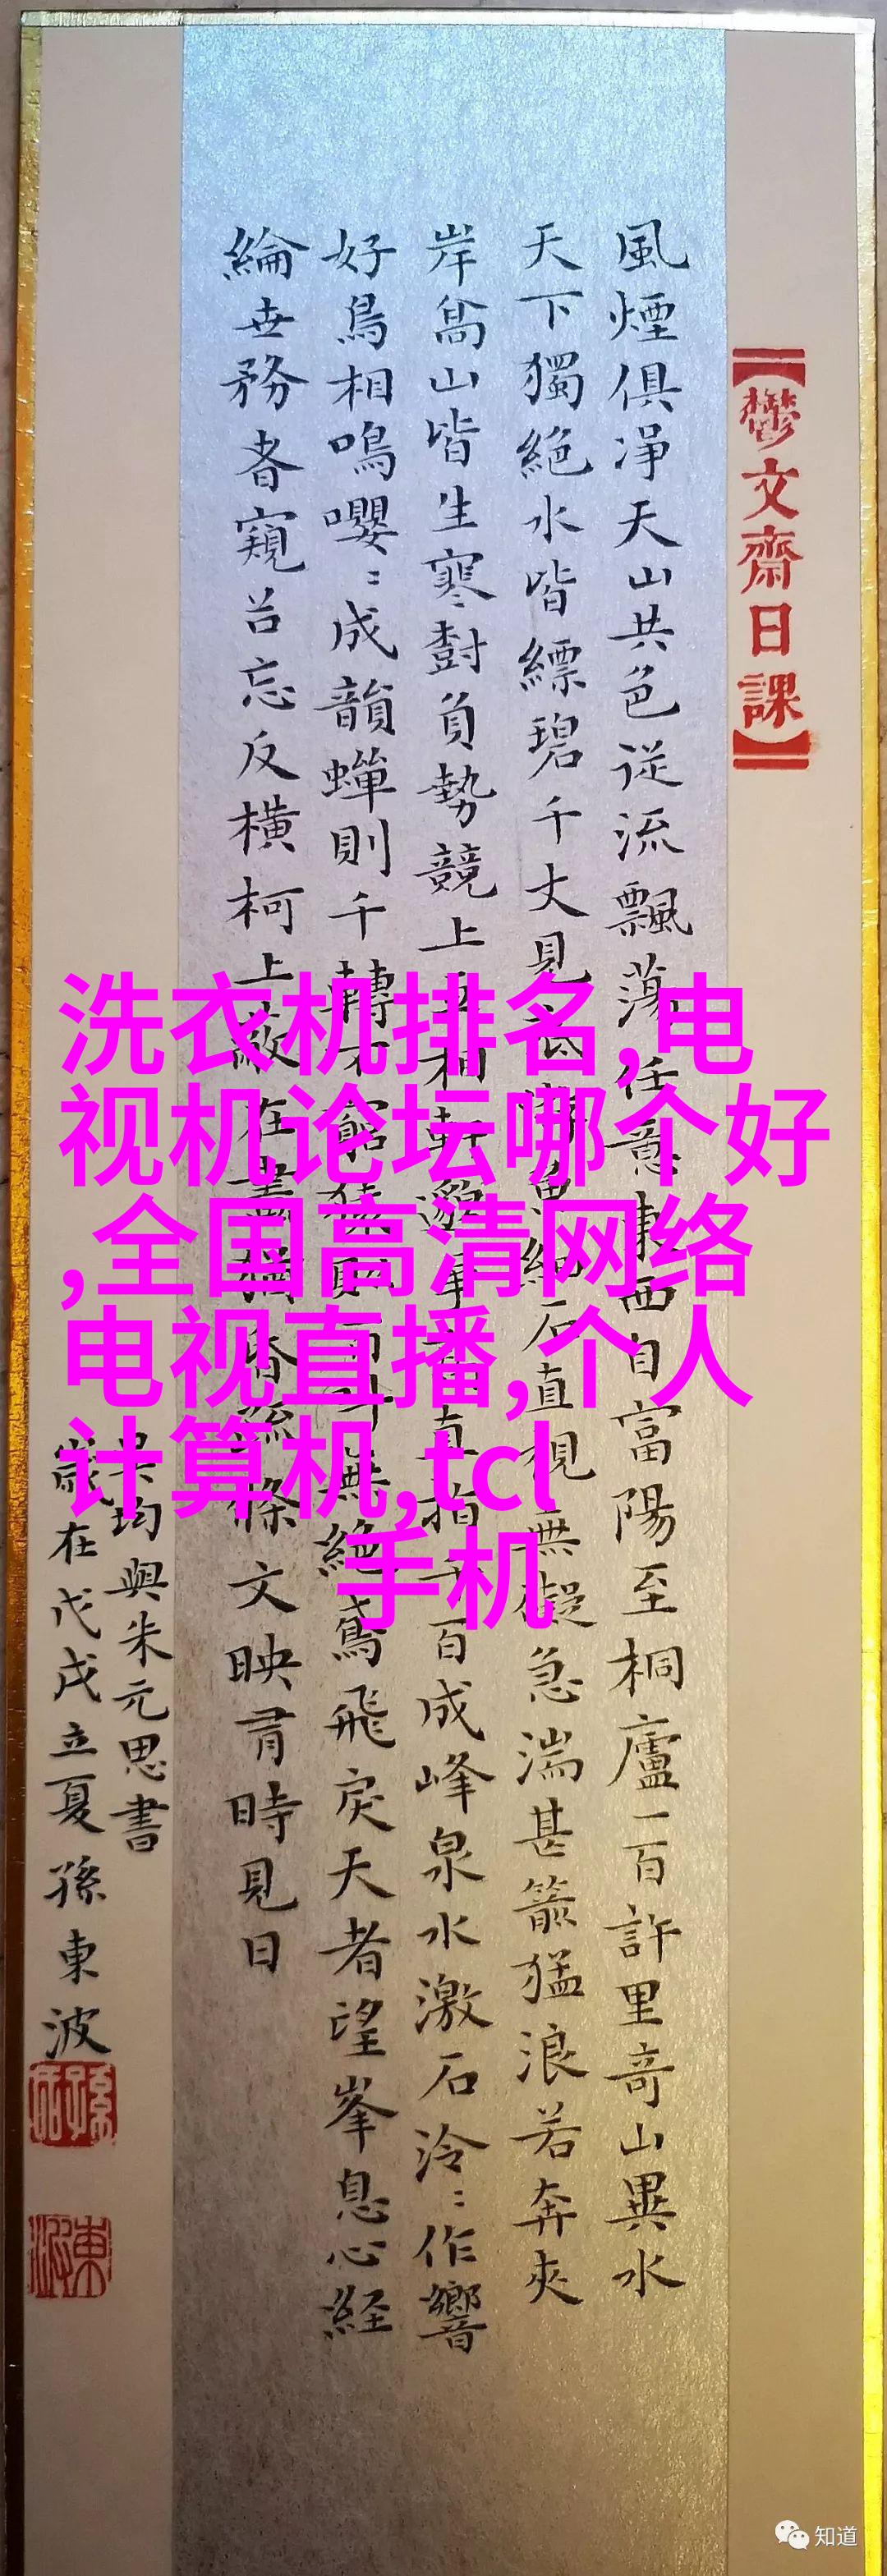 【鬱文齋日課】
風煙俱凈天山共色從流飄蕩任意東西自富陽至桐廬一百許里奇山異水
天下獨絕水皆縹碧千丈見底游魚細石直視無礙急湍甚箭猛浪若奔夾
岸高山皆生寒樹負勢競上互相軒邈爭高直指千百成峰泉水激石泠〻作響
好鳥相鳴嚶〻成韻蟬則千轉不窮猿則百叫無絕鳶飛戾天者望峯息心経
綸世務者窺谷忘反橫柯上蔽在晝猶昏疏條交映有時見日
吳均與朱元思書
歲在戊戌立夏孫東波
洗衣机排名,电
视机论坛哪个好
,全国高清网络
电视直播,个人
计算机,tcl
手机
知道